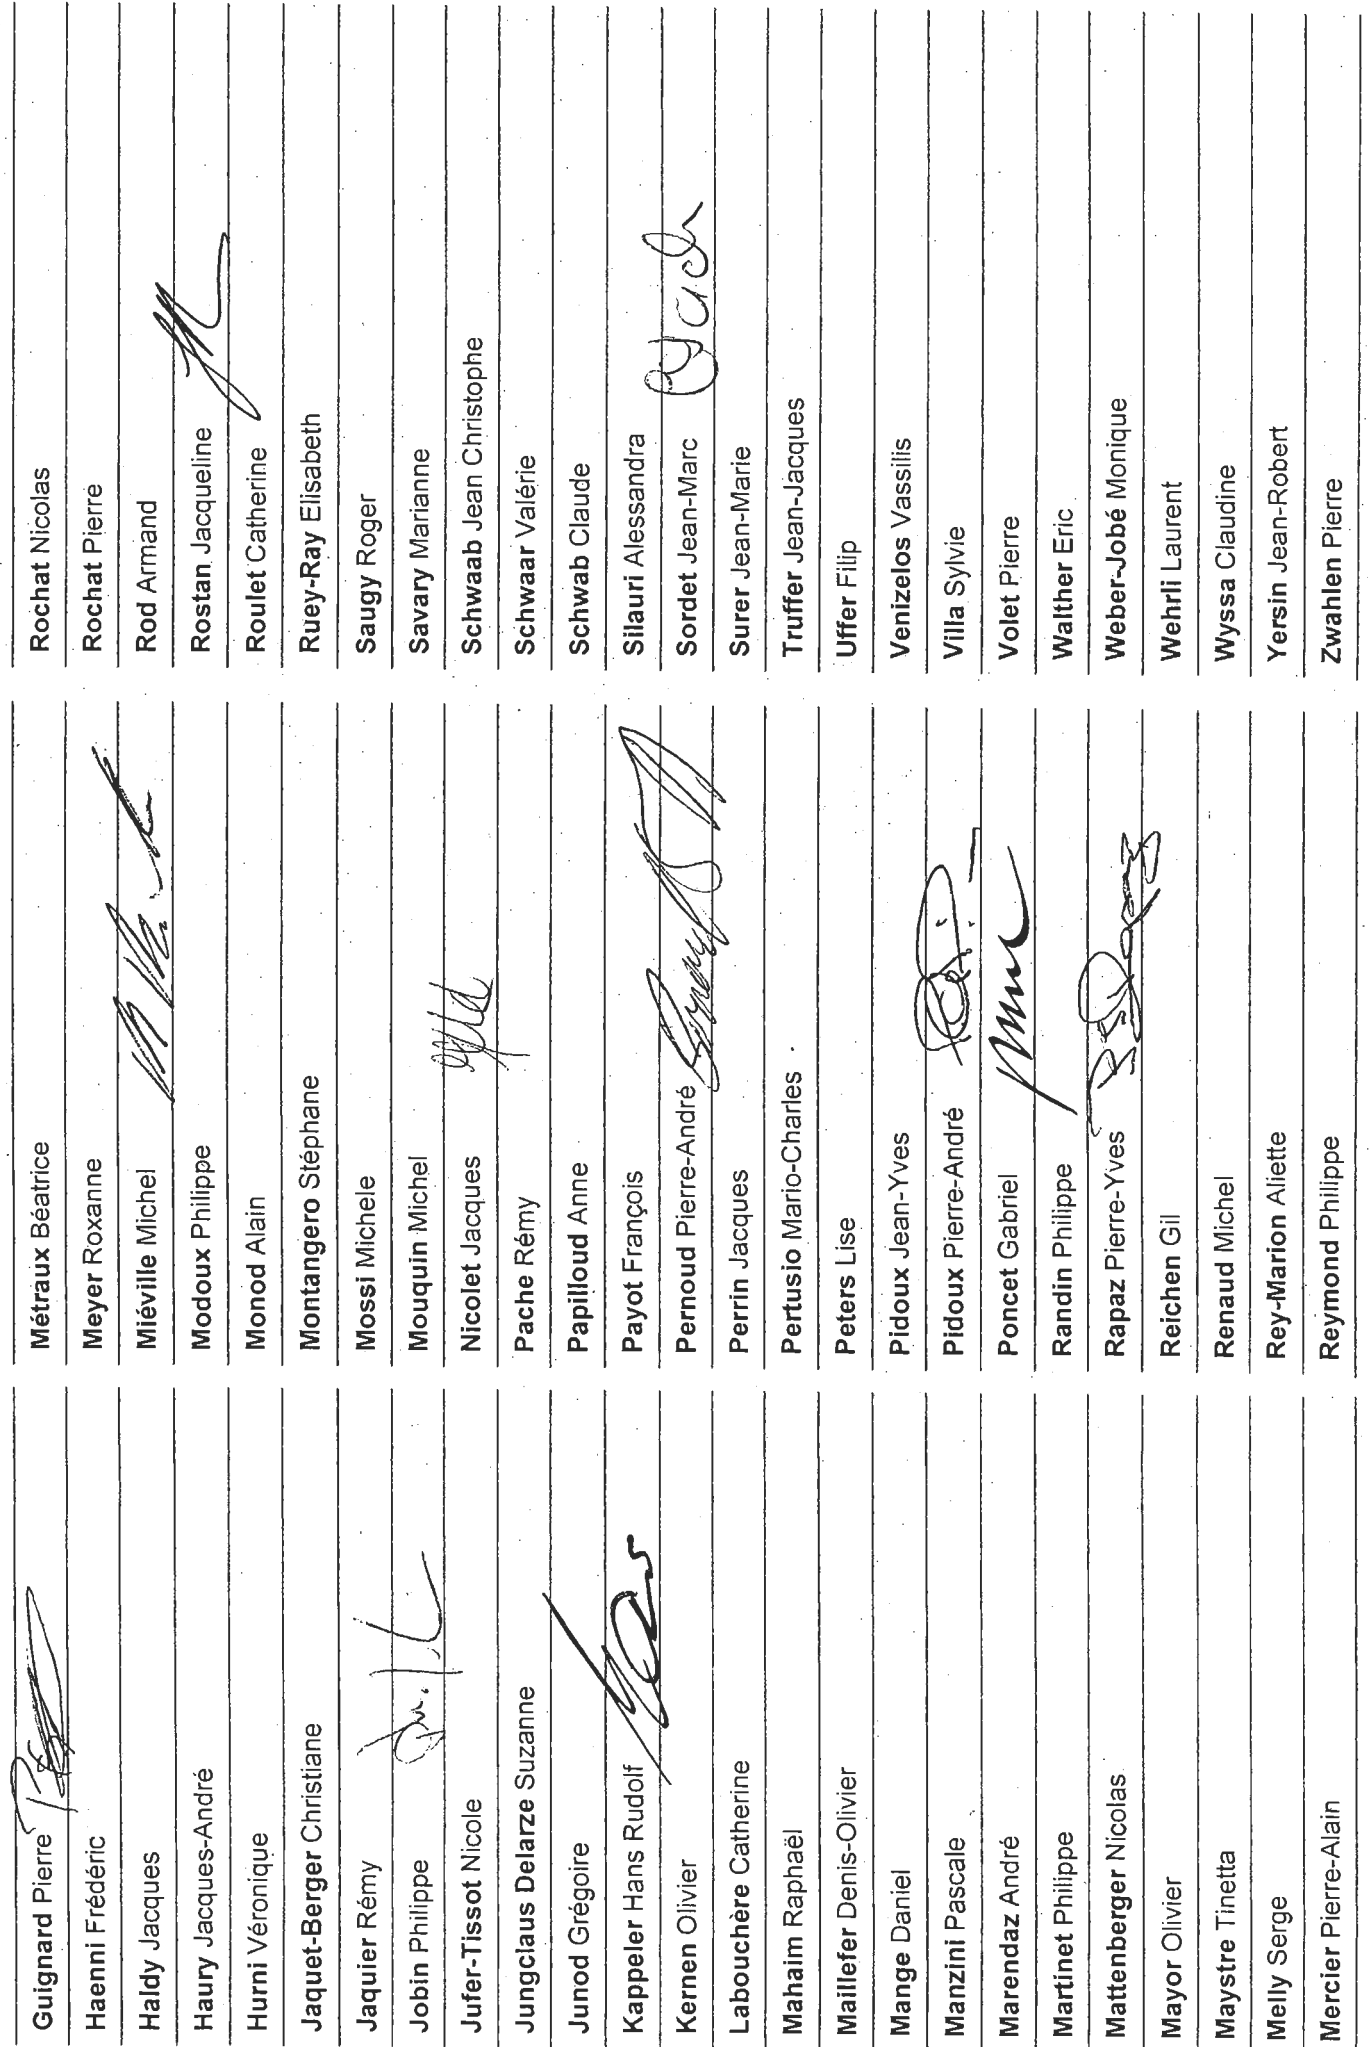 Guignard Pierre
Haenni Frédéric
Haldy Jacques
Haury Jacques-André
Hurni Véronique
Jaquet-Berger Christiane
Jaquier Rémy
Jobin Philippe
Jufer-Tissot Nicole
Jungclaus Delarze Suzanne
Junod Grégoire
Kappeler Hans Rudolf
Kernen Olivier
Labouchère Catherine
Mahaim Raphaël
Maillefer Denis-Olivier
Mange Daniel
Manzini Pascale
Marendaz André
Martinet Philippe
Mattenberger Nicolas
Mayor Olivier
Maystre Tinetta
Melly Serge
Mercier Pierre-Alain
Métraux Béatrice
Meyer Roxanne
Miéville Michel
Modoux Philippe
Monod Alain
Montangero Stéphane
Mossi Michele
Mouquin Michel
Nicolet Jacques
Pache Rémy
Papilloud Anne
Payot François
Pernoud Pierre-André
Perrin Jacques
Pertusio Mario-Charles
Peters Lise
Pidoux Jean-Yves
Pidoux Pierre-André
Poncet Gabriel
Randin Philippe
Rapaz Pierre-Yves
Reichen Gil
Renaud Michel
Rey-Marion Aliette
Reymond Philippe
Rochat Nicolas
Rochat Pierre
Rod Armand
Rostan Jacqueline
Roulet Catherine
Ruey-Ray Elisabeth
Saugy Roger
Savary Marianne
Schwaab Jean Christophe
Schwaar Valérie
Schwab Claude
Silauri Alessandra
Sordet Jean-Marc
Surer Jean-Marie
Truffer Jean-Jacques
Uffer Filip
Venizelos Vassilis
Villa Sylvie
Volet Pierre
Walther Eric
Weber-Jobé Monique
Wehrli Laurent
Wyssa Claudine
Yersin Jean-Robert
Zwahlen Pierre